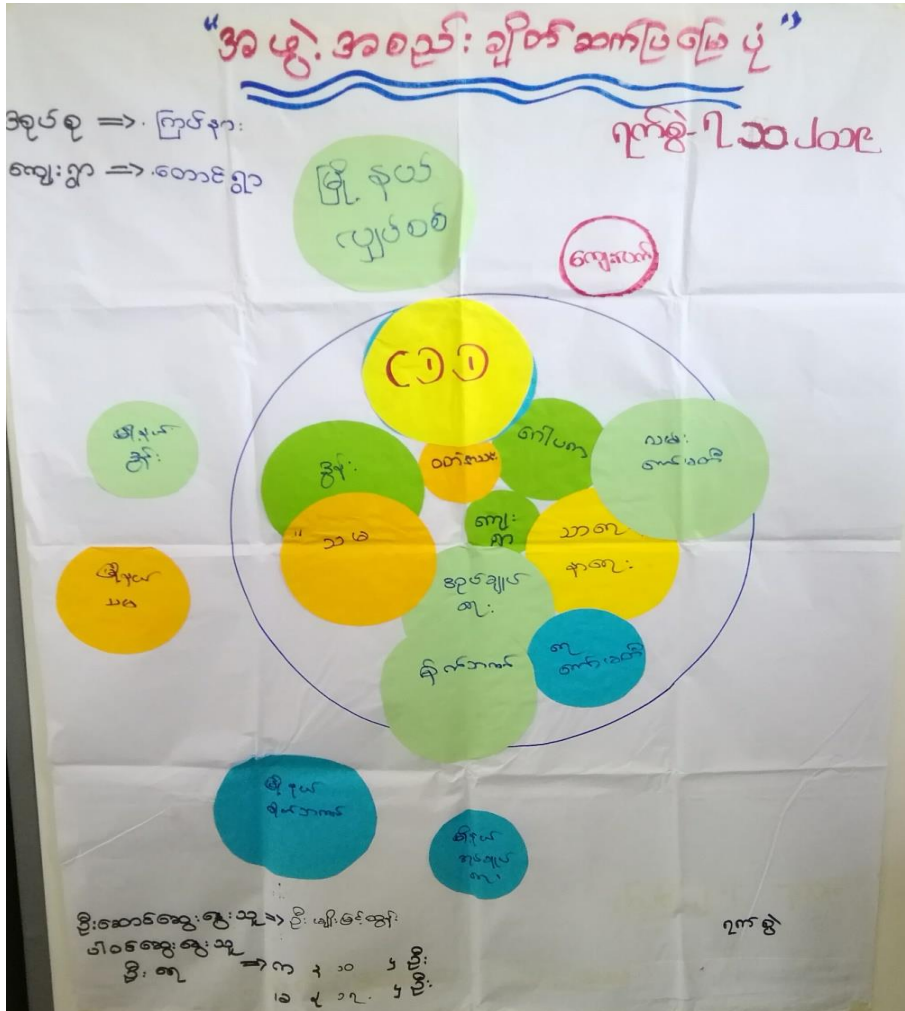 "အဖွဲ့အစည်းချိတ်ဆက်ပြမြေပုံ"
အုပ်စု => ကြပ်နား
ကျေးရွာ => တောင်ရွာ
ရက်စွဲ-၇ ၁၁ ၂၀၁၉
မြို့နယ်
လျှပ်စစ်
ကျေးလက်
၎၁၁
မြို့နယ်
ဒွန်း
ဒွန်း
ဂေါပက
လမ်း
ကော်မတီ
"သမ
ကျေး
ရွာ
သာရေး
နာရေး
မြို့နယ်
သမ
အုပ်ချုပ်
ရေး
စိုက်ဘဏ်
ရေ
ကော်မတီ
မြို့နယ်
စိုက်ဘဏ်
မြို့နယ်
အုပ်ချုပ်
ရေး
ဦးဆောင်ဆွေးနွေးသူ => ဦးမျိုးမြင့်ထွန်း
ပါဝင်ဆွေးနွေးသူ
ဦးရေ => က
ဦး
ဦး
ရက်စွဲ